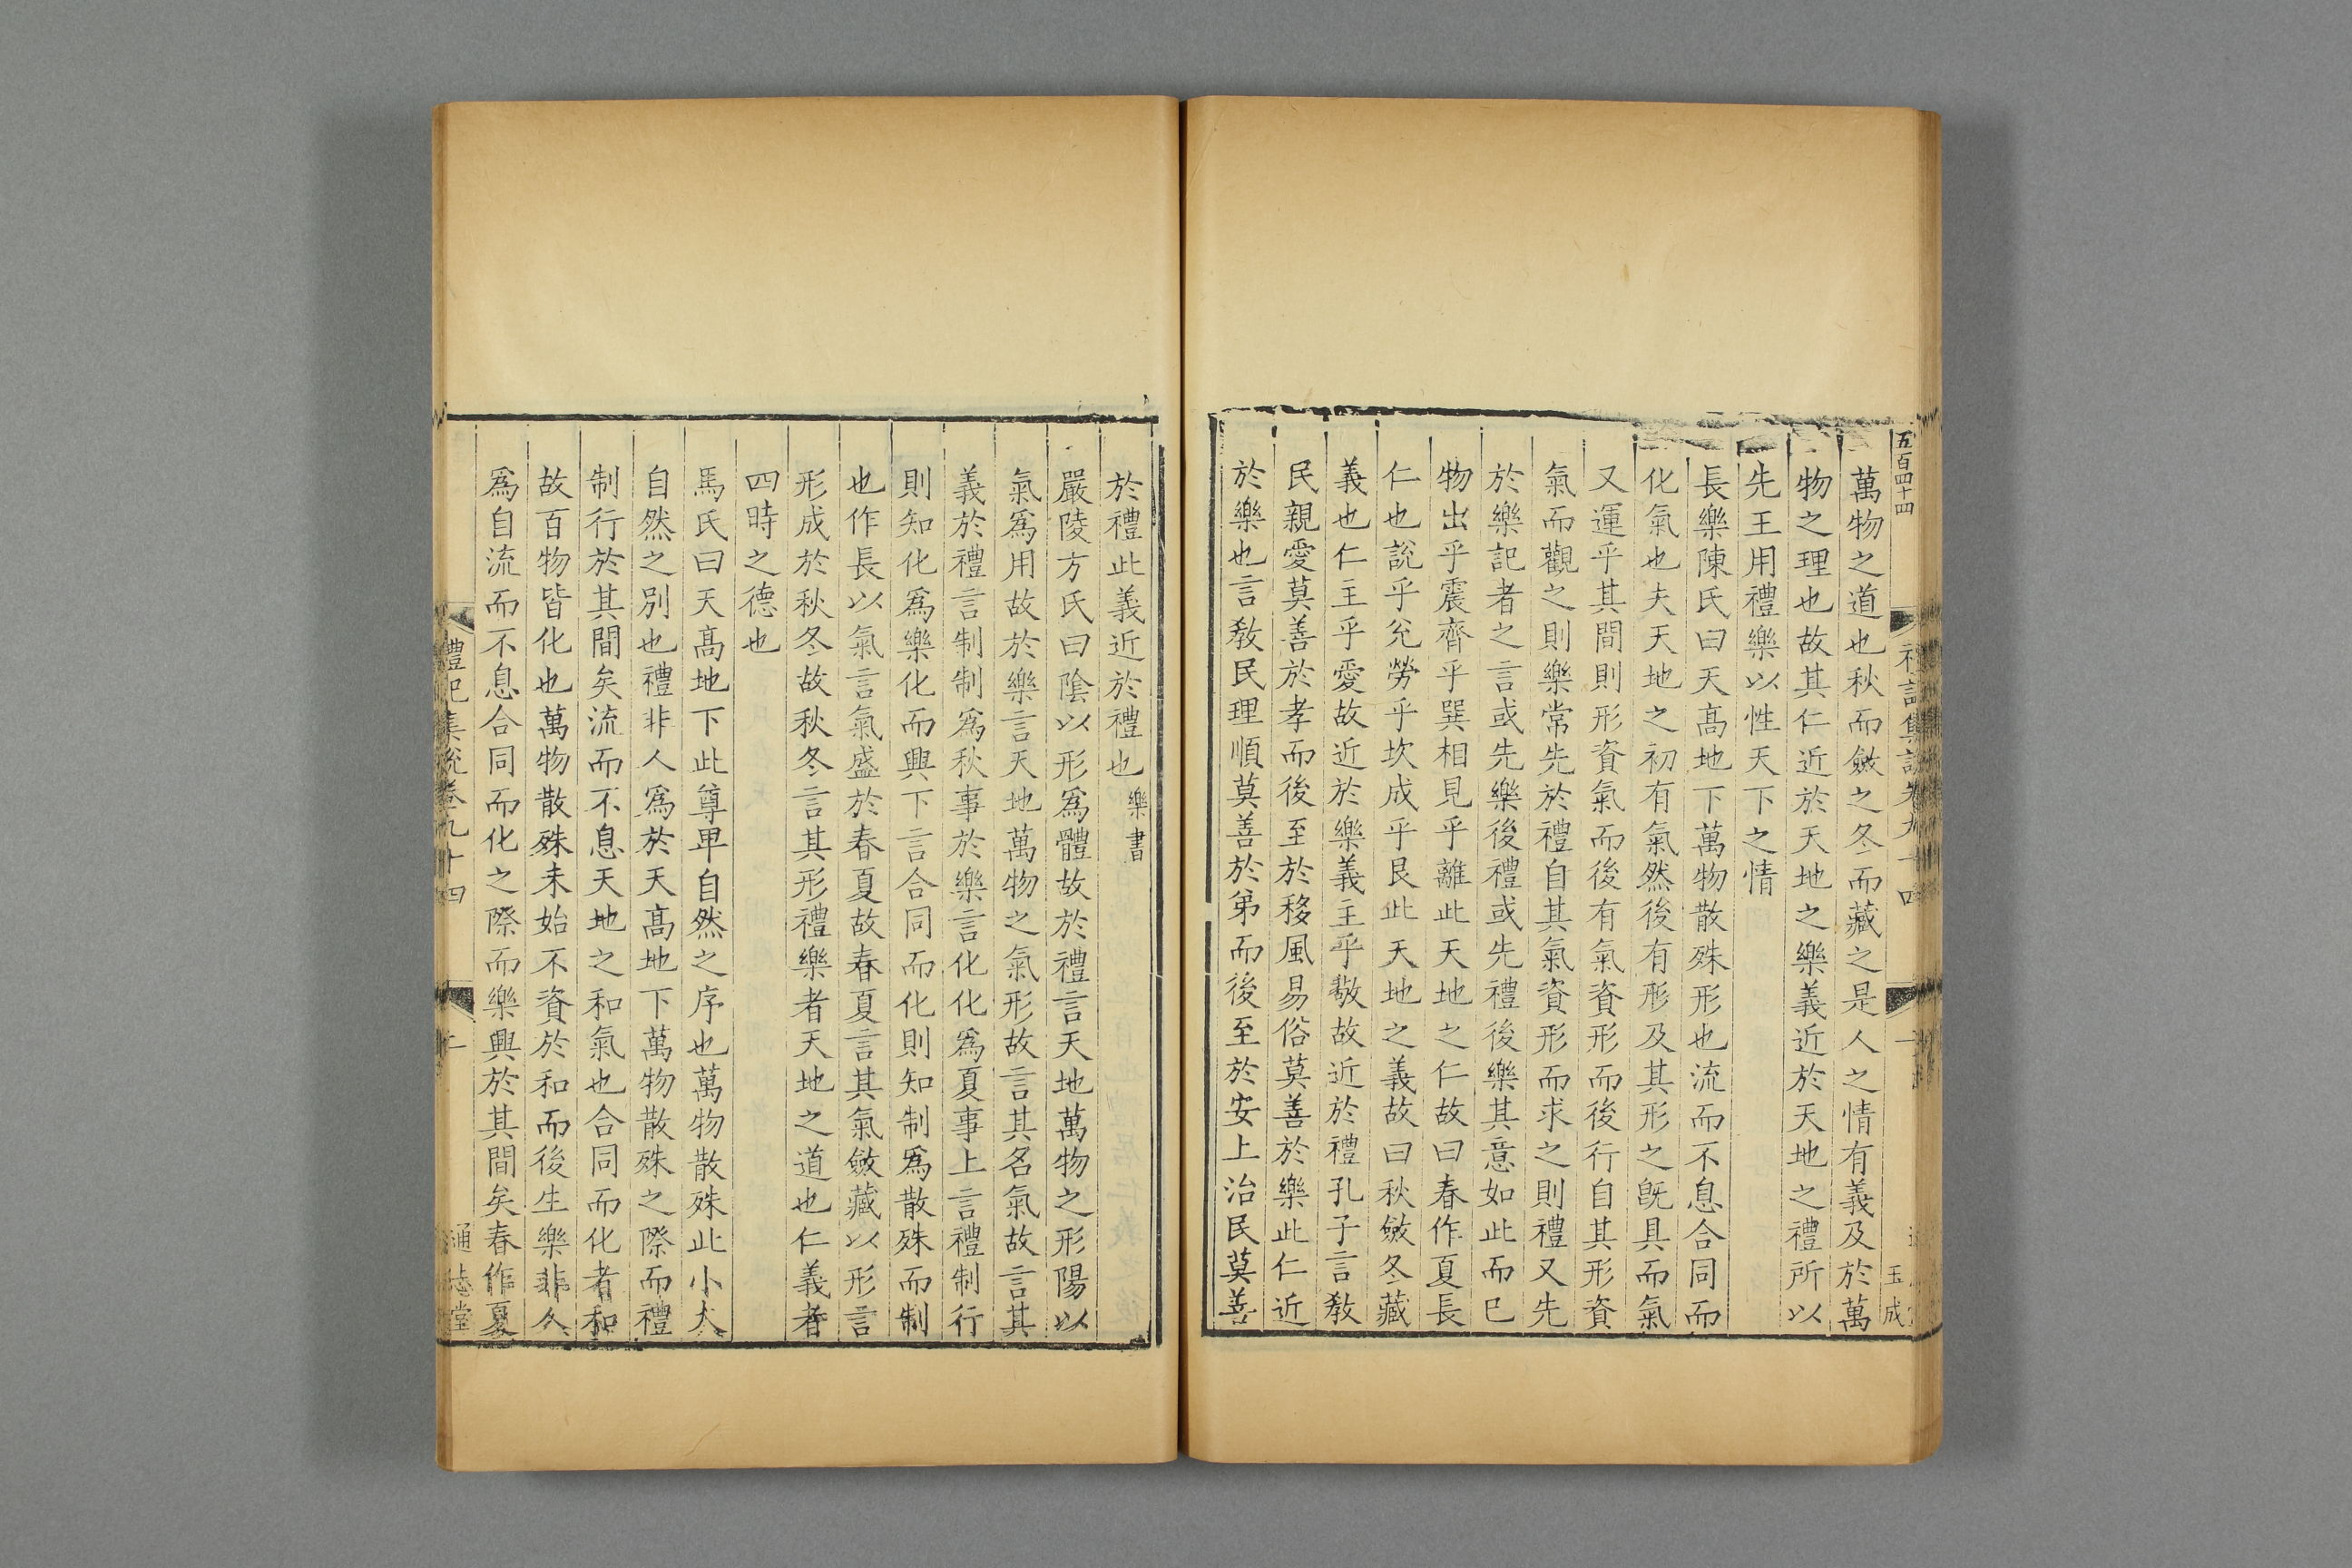 五百四十四
禮記集說卷九十四
一
玉成
萬物之道也秋而斂之冬而藏之是人之情有義及於萬
物之理也故其仁近於天地之樂義近於天地之禮所以
先王用禮樂以性天下之情
長樂陳氏曰天髙地下萬物散殊形也流而不息合同而
化氣也夫天地之初有氣然後有形及其形之旣具而氣
又運乎其間則形資氣而後有氣資形而後行自其形資
氣而觀之則樂常先於禮自其氣資形而求之則禮又先
於樂記者之言或先樂後禮或先禮後樂其意如此而已
物出乎震齊乎巽相見乎離此天地之仁故曰春作夏長
仁也說乎兊勞乎坎成乎艮此天地之義故曰秋斂冬藏
義也仁主乎愛故近於樂義主乎敬故近於禮孔子言敎
民親愛莫善於孝而後至於移風易俗莫善於樂此仁近
於樂也言敎民理順莫善於弟而後至於安上治民莫善
於禮此義近於禮也樂書
嚴陵方氏曰隂以形爲體故於禮言天地萬物之形陽以
氣爲用故於樂言天地萬物之氣形故言其名氣故言其
義於禮言制制爲秋事於樂言化化爲夏事上言禮制行
則知化爲樂化而興下言合同而化則知制爲散殊而制
也作長以氣言氣盛於春夏故春夏言其氣斂藏以形言
形成於秋冬故秋冬言其形禮樂者天地之道也仁義者
四時之德也
馬氏曰天髙地下此尊卑自然之序也萬物散殊此小大
自然之別也禮非人爲於天髙地下萬物散殊之際而禮
制行於其間矣流而不息天地之和氣也合同而化者和
故百物皆化也萬物散殊未始不資於和而後生樂非久
爲自流而不息合同而化之際而樂興於其間矣春作夏
禮記集說卷九十四
二
通志堂